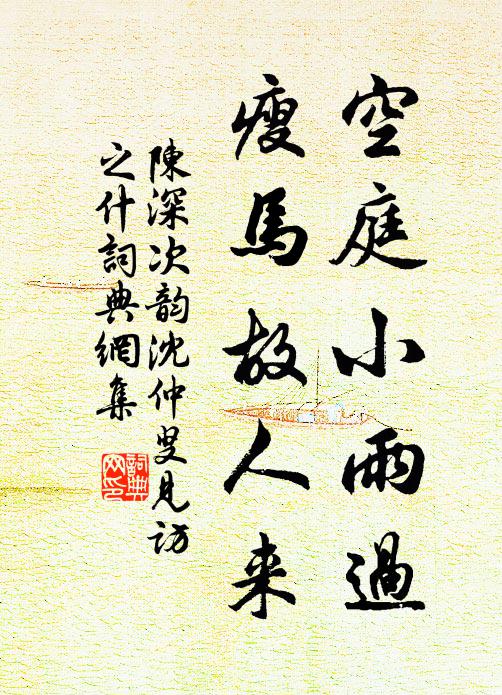 空庭小雨過
瘦馬故人来
陳深次韵沈仲叟見訪
之什詞典網集
詞典
网印